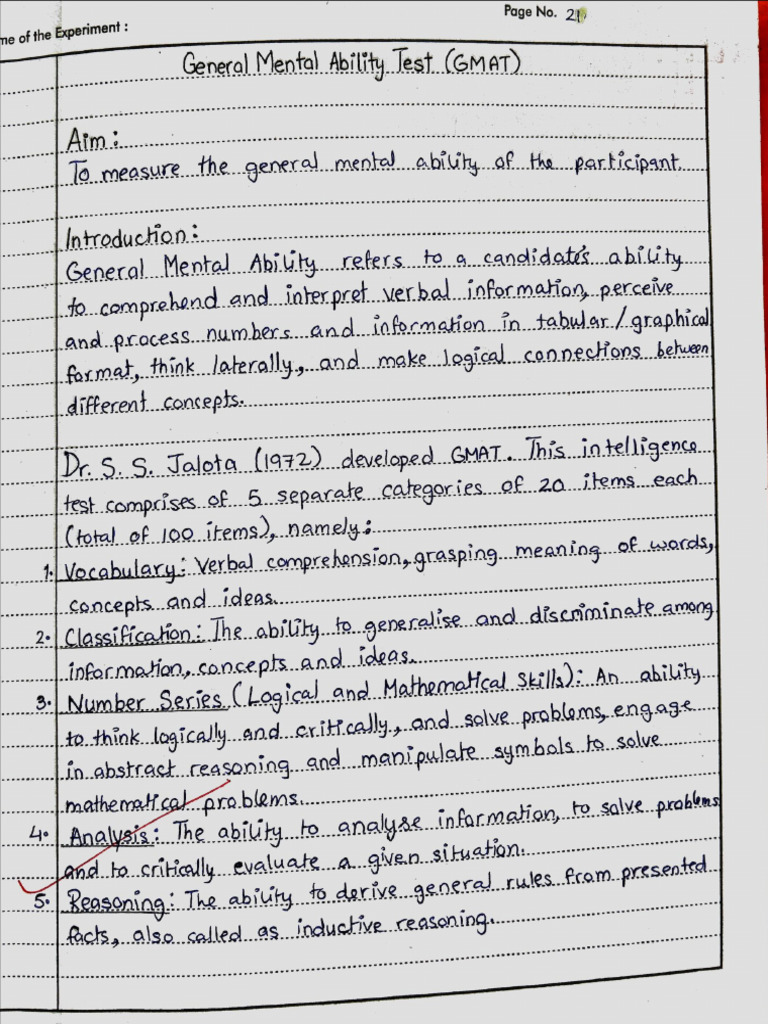 Page No. 21
me of the Experiment :
General Mental Ability Test (GMAT)
Aim:
To measure the general mental ability of the participant.
Introduction:
General Mental Ability refers to a candidate's ability
to comprehend and interpret verbal information, perceive
and process numbers and information in tabular/graphical
format, think laterally, and make logical connections between
different concepts.
Dr. S. S. Jalota (1972) developed GMAT. This intelligence
test comprises of 5 separate categories of 20 items each
(total of 100 items), namely:
1. Vocabulary: Verbal comprehension, grasping meaning of words,
concepts and ideas.
2. Classification: The ability to generalise and discriminate among
information, concepts and ideas.
3. Number Series (Logical and Mathematical Skills): An ability
to think logically and critically, and solve problems, engage
in abstract reasoning and manipulate symbols to solve
mathematical problems.
4. Analysis: The ability to analyse information, to solve problems
and to critically evaluate a given situation.
5. Reasoning: The ability to derive general rules from presented
facts, also called as inductive reasoning.